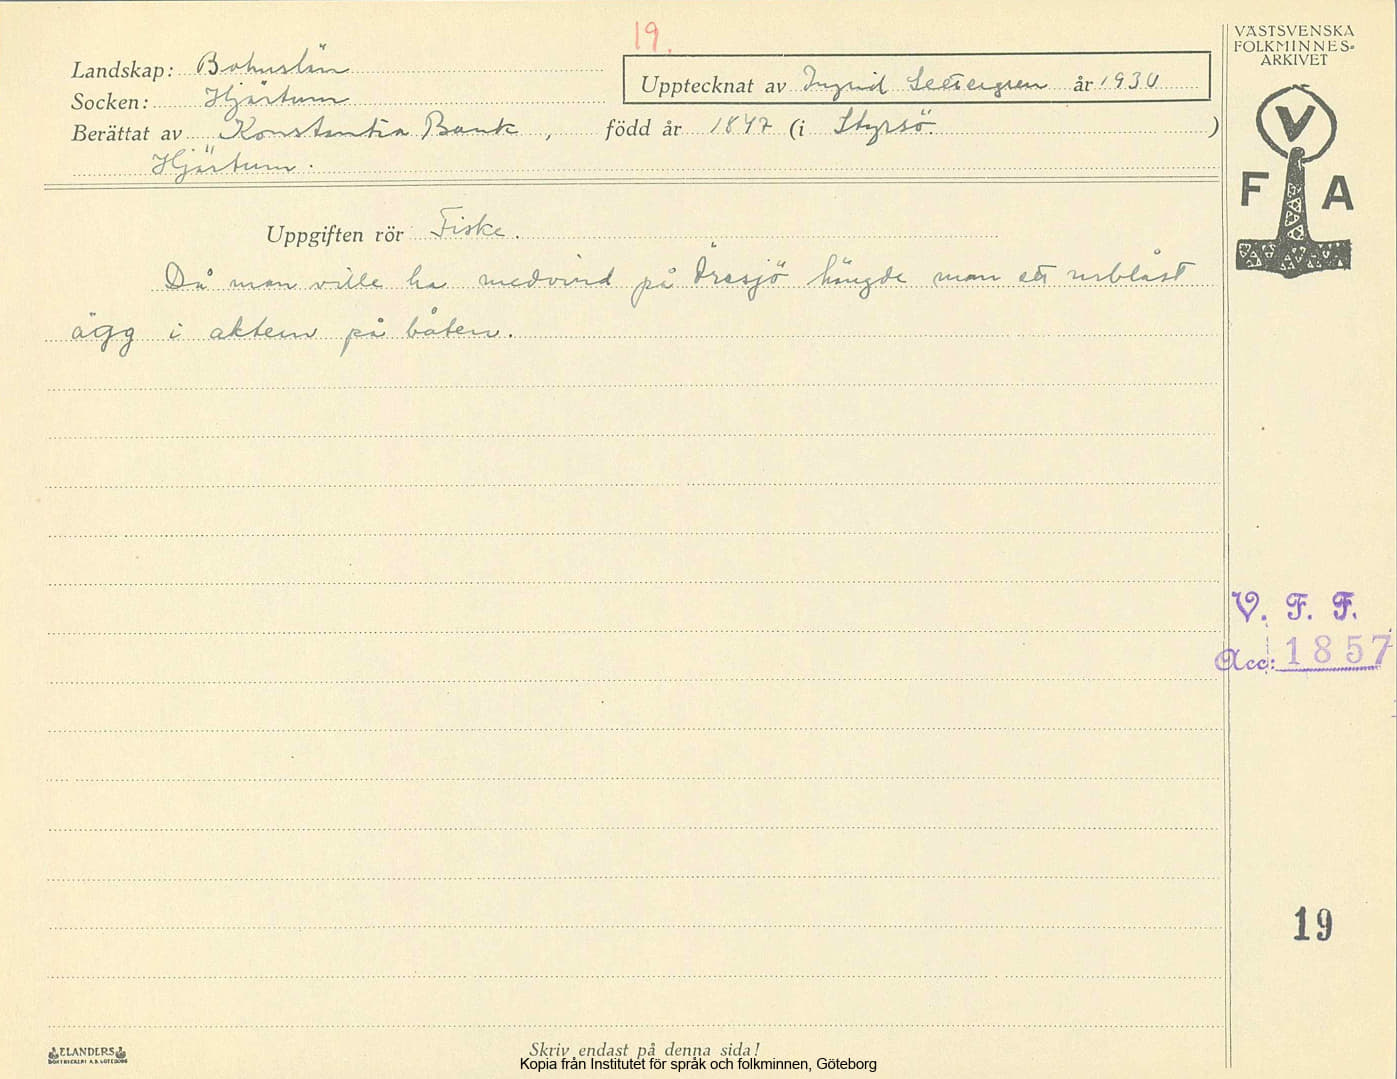 19.
VÄSTSVENSKA
FOLKMINNES-
ARKIVET
Landskap: Bohuslän
Upptecknat av Ingrid år 1930
Socken: Hjärtum
Berättat av Konstantia Bank, född år 1847 (i Styrsö.)
Hjärtum.
V
F A
Uppgiften rör Fiske.
Då man ville ha medvind på Öresjö hängde man ett urblåst
ägg i aktern på båten.
V. F. F.
Acc: 1857
19
ELANDERS
BOKTRYCKERI A.B. GÖTEBORG
Skriv endast på denna sida!
Kopia från Institutet för språk och folkminnen, Göteborg